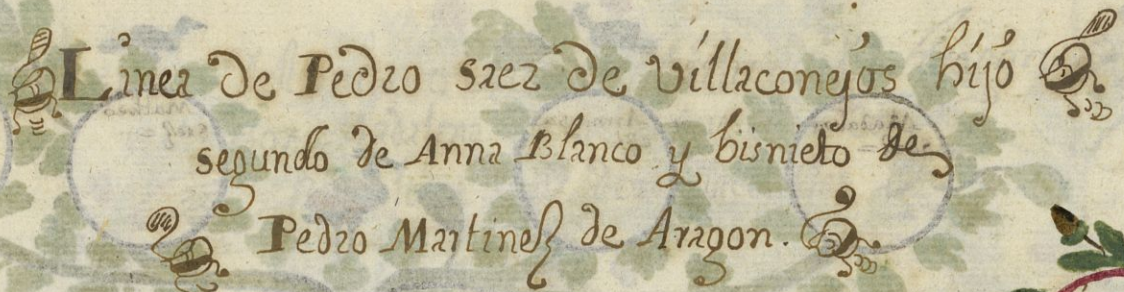 Linea de Pedro saez de villaconejos hijo
segundo de Anna Blanco y bisnieto de
Pedro Martinez de Aragon.